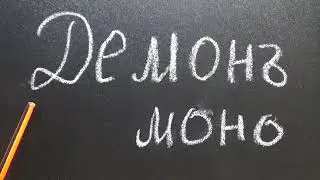 Демонъ
моно